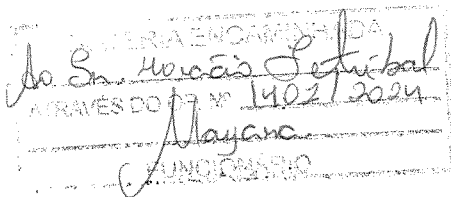 MATÉRIA ENCAMINHADA
Ao Sr. Horácio Setúbal
ATRAVÉS DO OF. Nº 1402/2024
Mayana
FUNCIONÁRIO